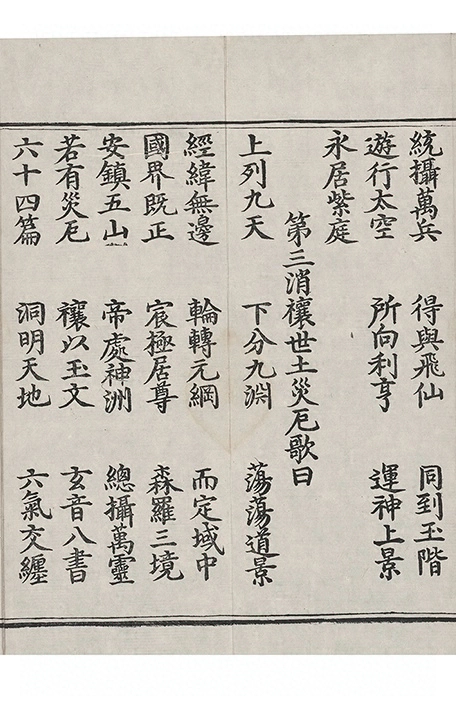 統攝萬兵　得與飛仙　同到玉階
遊行太空　所向利亨　運神上景
永居紫庭
第三消禳世土災厄歌曰
上列九天　下分九淵　蕩蕩道景
經緯無邊　輪轉元綱　而定域中
國界既正　宸極居尊　森羅三境
安鎮五山　帝處神洲　總攝萬靈
若有災厄　禳以玉文　玄音八書
六十四篇　洞明天地　六氣交纏